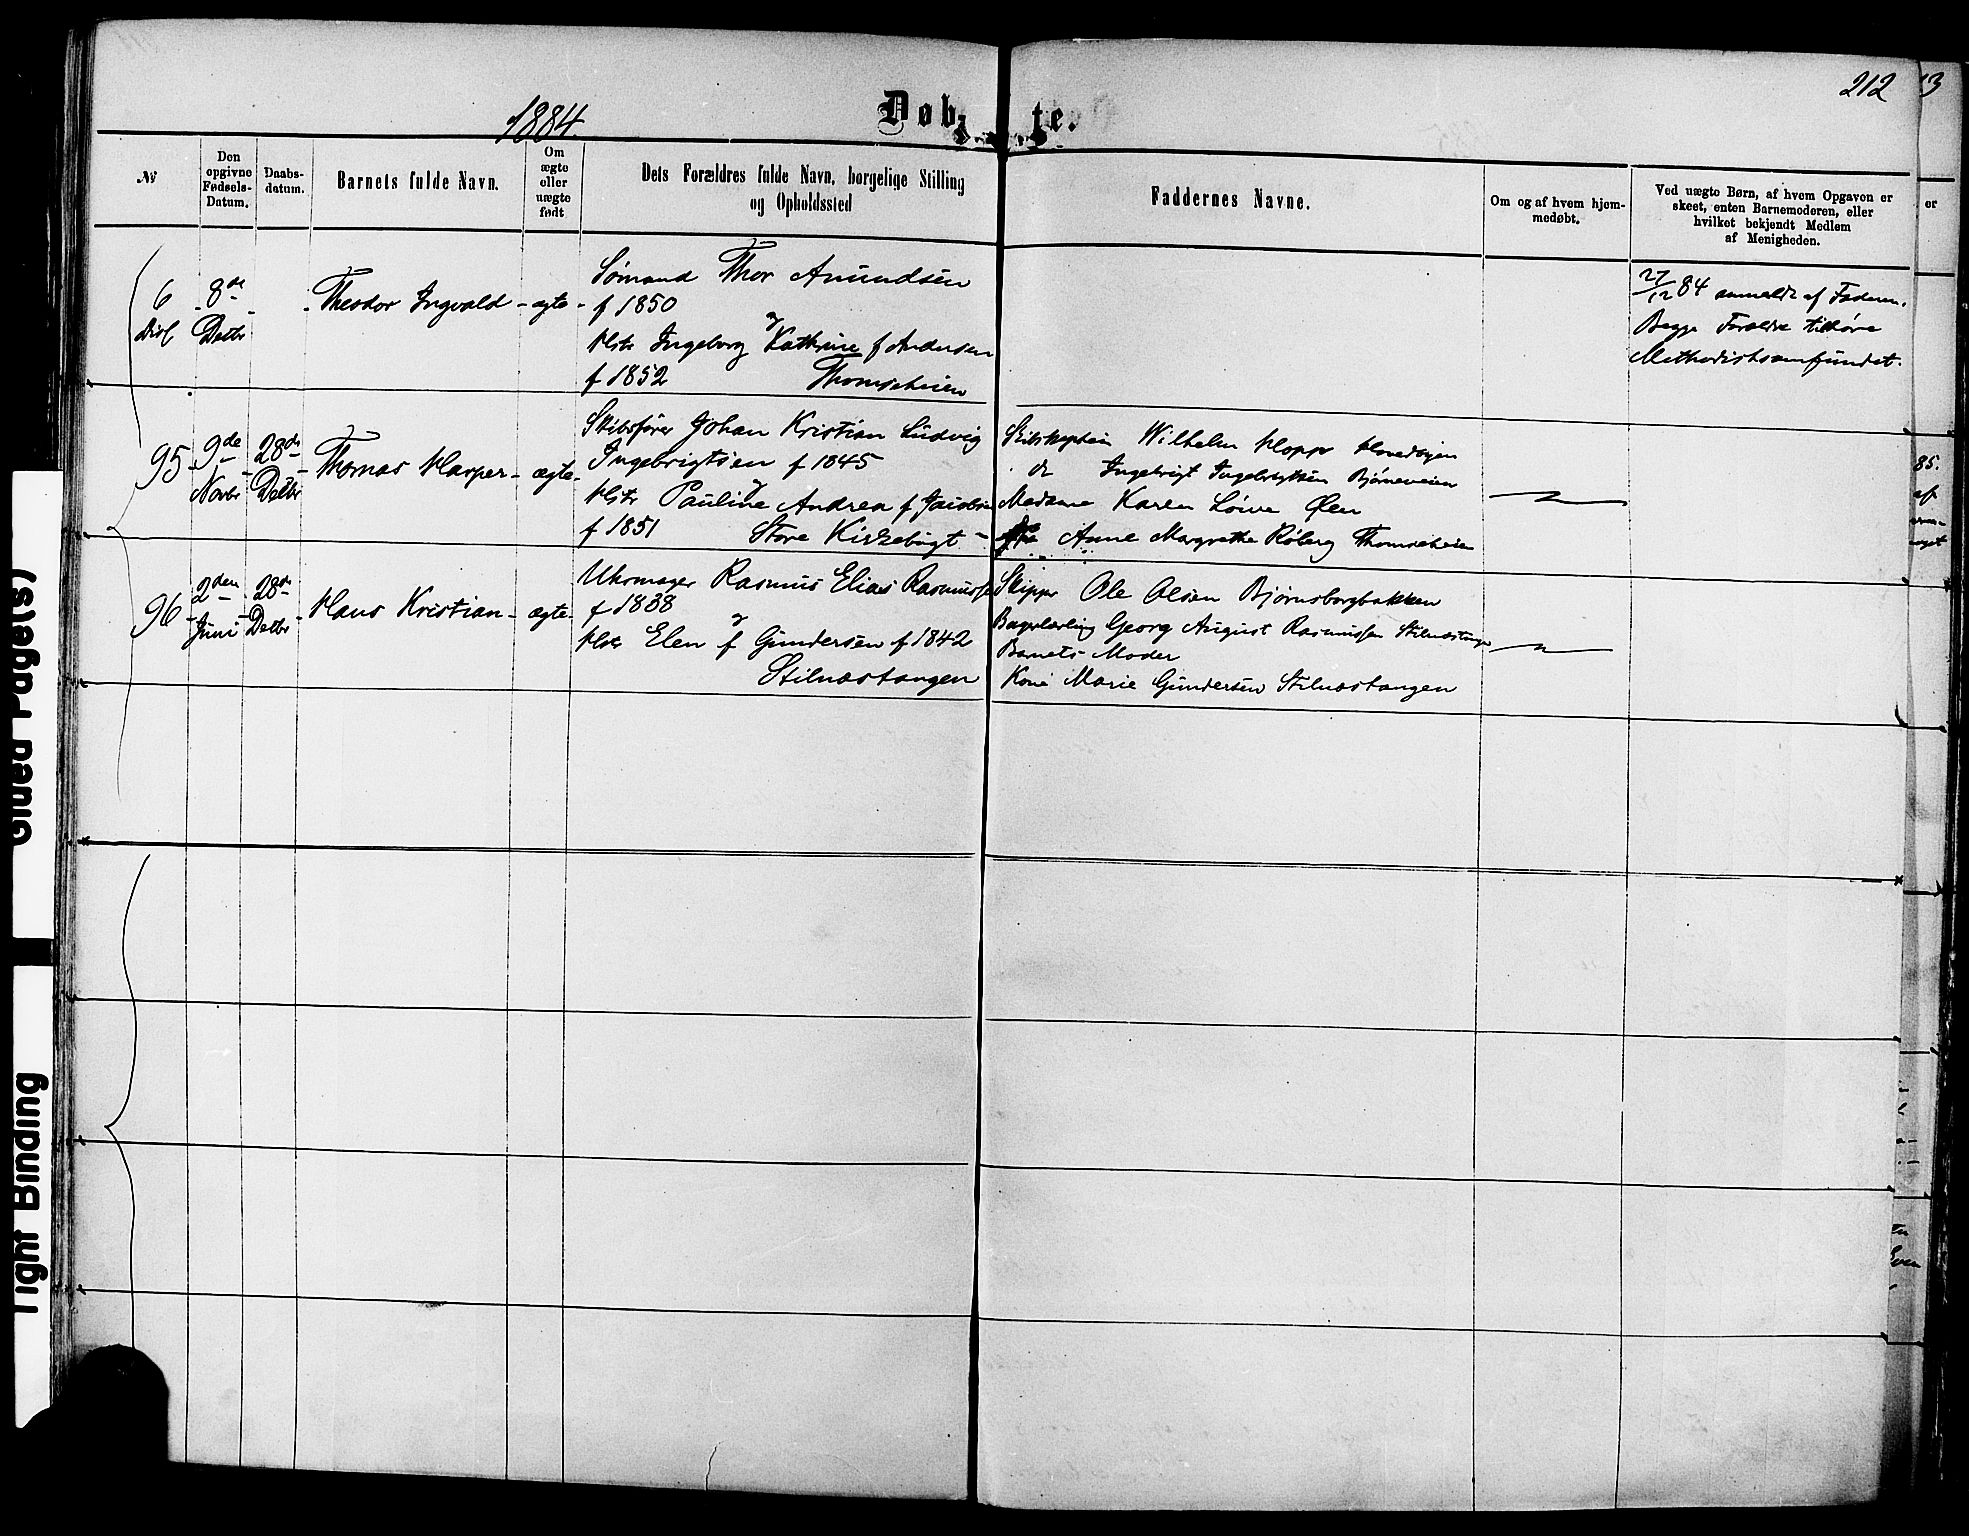 1884.
Døbte.
212
13
№
Den opgivne Fødsels-Datum.
Daabs-datum.
Barnets fulde Navn.
Om ægte eller uægte født
Dets Forældres fulde Navn, borgelige Stilling og Opholdssted
Faddernes Navne.
Om og af hvem hjem-medøbt.
Ved uægte Børn, af hvem Opgaven er skeet, enten Barnemoderen, eller hvilket bekjendt Medlem af Menigheden.
er
6
8de
Decbr
Theodor Ingvald - ægte -
Sømand Thor Amundsen
f 1850
og
Hstr Ingeborg Kathrine f Andersen
f 1852 Thomseheien
27/12 84 anmeldt af Faderen.
Begge Forældre tilhøre
Methodistsamfundet.
95
9de
Novbr
28de
Decbr
Thomas Harper - ægte -
Skibsfører Johan Kristian Ludvig
Ingebrigtsen f 1845
og
Hstr Pauline Andrea f Jacobsen
f 1851 Store Kirkebugt -
Skibskaptein Wilhelm Hopp
do Ingebrigt Ingebrigtsen Bjørneveien
Madame Karen Løive Øen
Anne Margrethe Röberg Thomseheien
96
2den
Juni
28de
Decbr
Hans Kristian - ægte -
Uhrmager Rasmus Elias Rasmussen
f 1838
og
Hstr Elen f Gundersen f 1842
Stilnæstangen
Skipper Ole Olsen Bjørnsborgbakken
Bagerlærling Georg August Rasmussen Stilnæstangen
Barnets Moder
Kone Marie Gundersen Stilnæstangen
85.
af
Light Binding